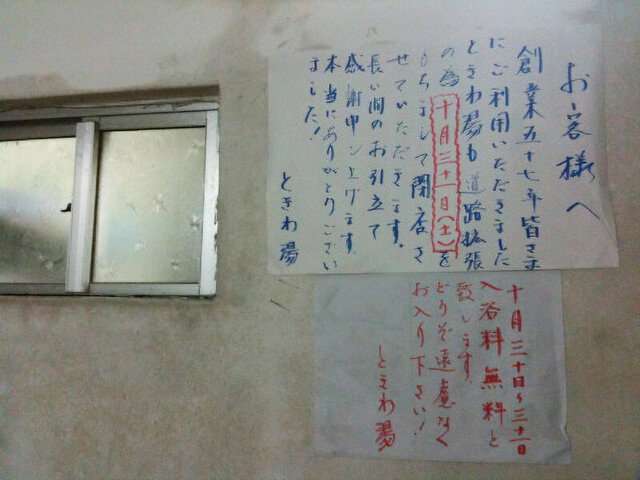 お客様へ
創業五十七年皆さま
にご利用いただきました
ときわ湯も道路拡張
の為十月三十一日(土)を
もちまして閉店させ
せていただきます。
長い間のお引立て
感謝申し上げます。
本当にありがとうござい
ました!
ときわ湯
十月三十日と三十一日
入浴料無料と
致します。
どうぞ遠慮なく
お入り下さい!
ときわ湯